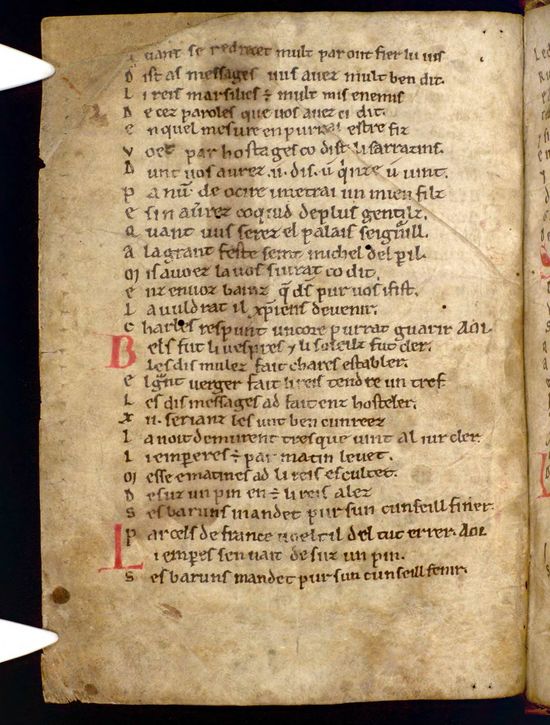 Quant se redrecet mult par out fier lu vis
D ist as messages vus auez mult ben dit.
L i reis marsilies ē mult mis enemis
D e cez paroles que vos auez ci dit.
E n quel mesure en purrai estre fiz
V oet par hostages ço dist li sarrazins.
D unt vos aurez .u. dis. ū q̍nze ū uint.
P a nū̄ de ocire i metrai un mien filz
E sin aurez ço quid de plus gentilz.
Q uant vus serez el palais seignurill.
A la grant feste seint michel del peril.
M is auoez la vos siurat ço dit.
E nz en voz bainz q̄ d̄s pur vos i fist.
L a vuldrat il xp̄iens deuenir.
C harles respunt uncore purrat guarir AOI
B els fut li vespres ⁊ li soleilz fut cler.
L es dis mulez fait charles establer.
E l g̍nt verger fait li reis tendre un tref
L es dis messages ad fait enz hosteler.
X ii. serianz les unt ben cunreez
L a noit demurent tresque vint al iur cler.
L i emperes ē par matin leuet.
M esse e matines ad li reis escultet.
D esuz un pin en ē li reis alez
S es baruns mandet pur sun cunseill finer.
P ar cels de france voelt il del tut errer. AOI
L i emperes sen vait desuz un pin.
S es baruns mandet pur sun cunseill fenir.